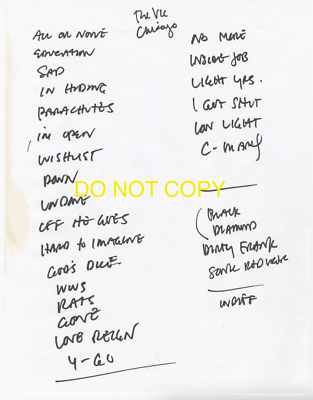 The Vic
Chicago
ALL OR NONE
EDUCATION
SAD
IN HIDING
PARACHUTES
I'M OPEN
WISHLIST
DOWN
UNDONE
OFF HE GOES
HARD TO IMAGINE
GOD'S DICE
WWS
RATS
GONE
LOVE REIGN
4-GO
NO MORE
INSIDE JOB
LIGHT YRS.
I GOT SHIT
LOW LIGHT
C-MANF
BLACK
DIAMOND
DIRTY FRANK
SONIC REDUCER
INDIFF
DO NOT COPY